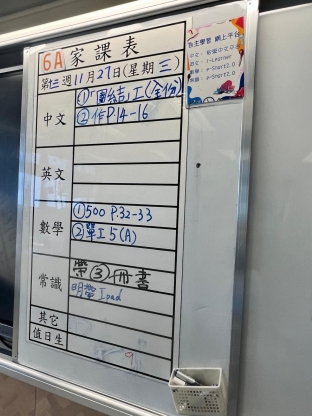 6A 家課表
第十三週11月27日(星期三)
中文
①"團結"工(全份)
②作P.14-16
英文
數學
①500 P.32-33
②單工5(A)
常識
帶③冊書
明帶Ipad
其它
值日生
自主學習 網上平台
i-Learner
e-Smart2.0
e-Smart2.0